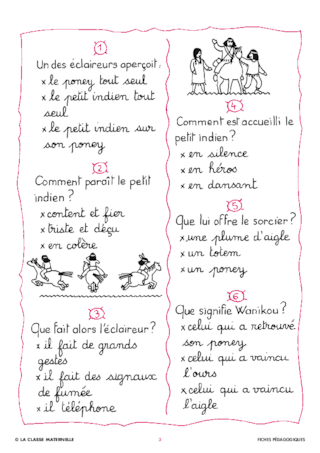 1
Un des éclaireurs aperçoit :
x le poney tout seul
x le petit indien tout
seul
x le petit indien sur
son poney
2
Comment paraît le petit
indien ?
x content et fier
x triste et déçu
x en colère
3
Que fait alors l'éclaireur ?
x il fait de grands
gestes
x il fait des signaux
de fumée
x il téléphone
4
Comment est accueilli le
petit indien ?
x en silence
x en héros
x en dansant
5
Que lui offre le sorcier ?
x une plume d'aigle
x un totem
x un poney
6
Que signifie Wanikou ?
x celui qui a retrouvé
son poney
x celui qui a vaincu
l'ours
x celui qui a vaincu
l'aigle
© LA CLASSE MATERNELLE
FICHES PÉDAGOGIQUES